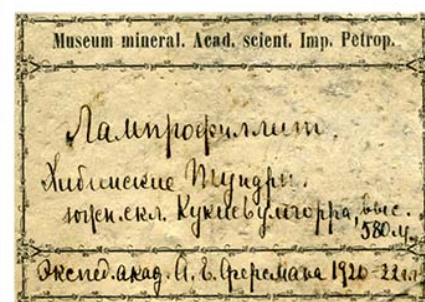 Museum mineral. Acad. scient. Imp. Petrop.
Лампрофиллит.
Хибинские Тундры.
южн. скл. Кукисвумчорра, выс.
580 м.
Экспед. акад. А. Е. Ферсмана 1920-22 г.г.